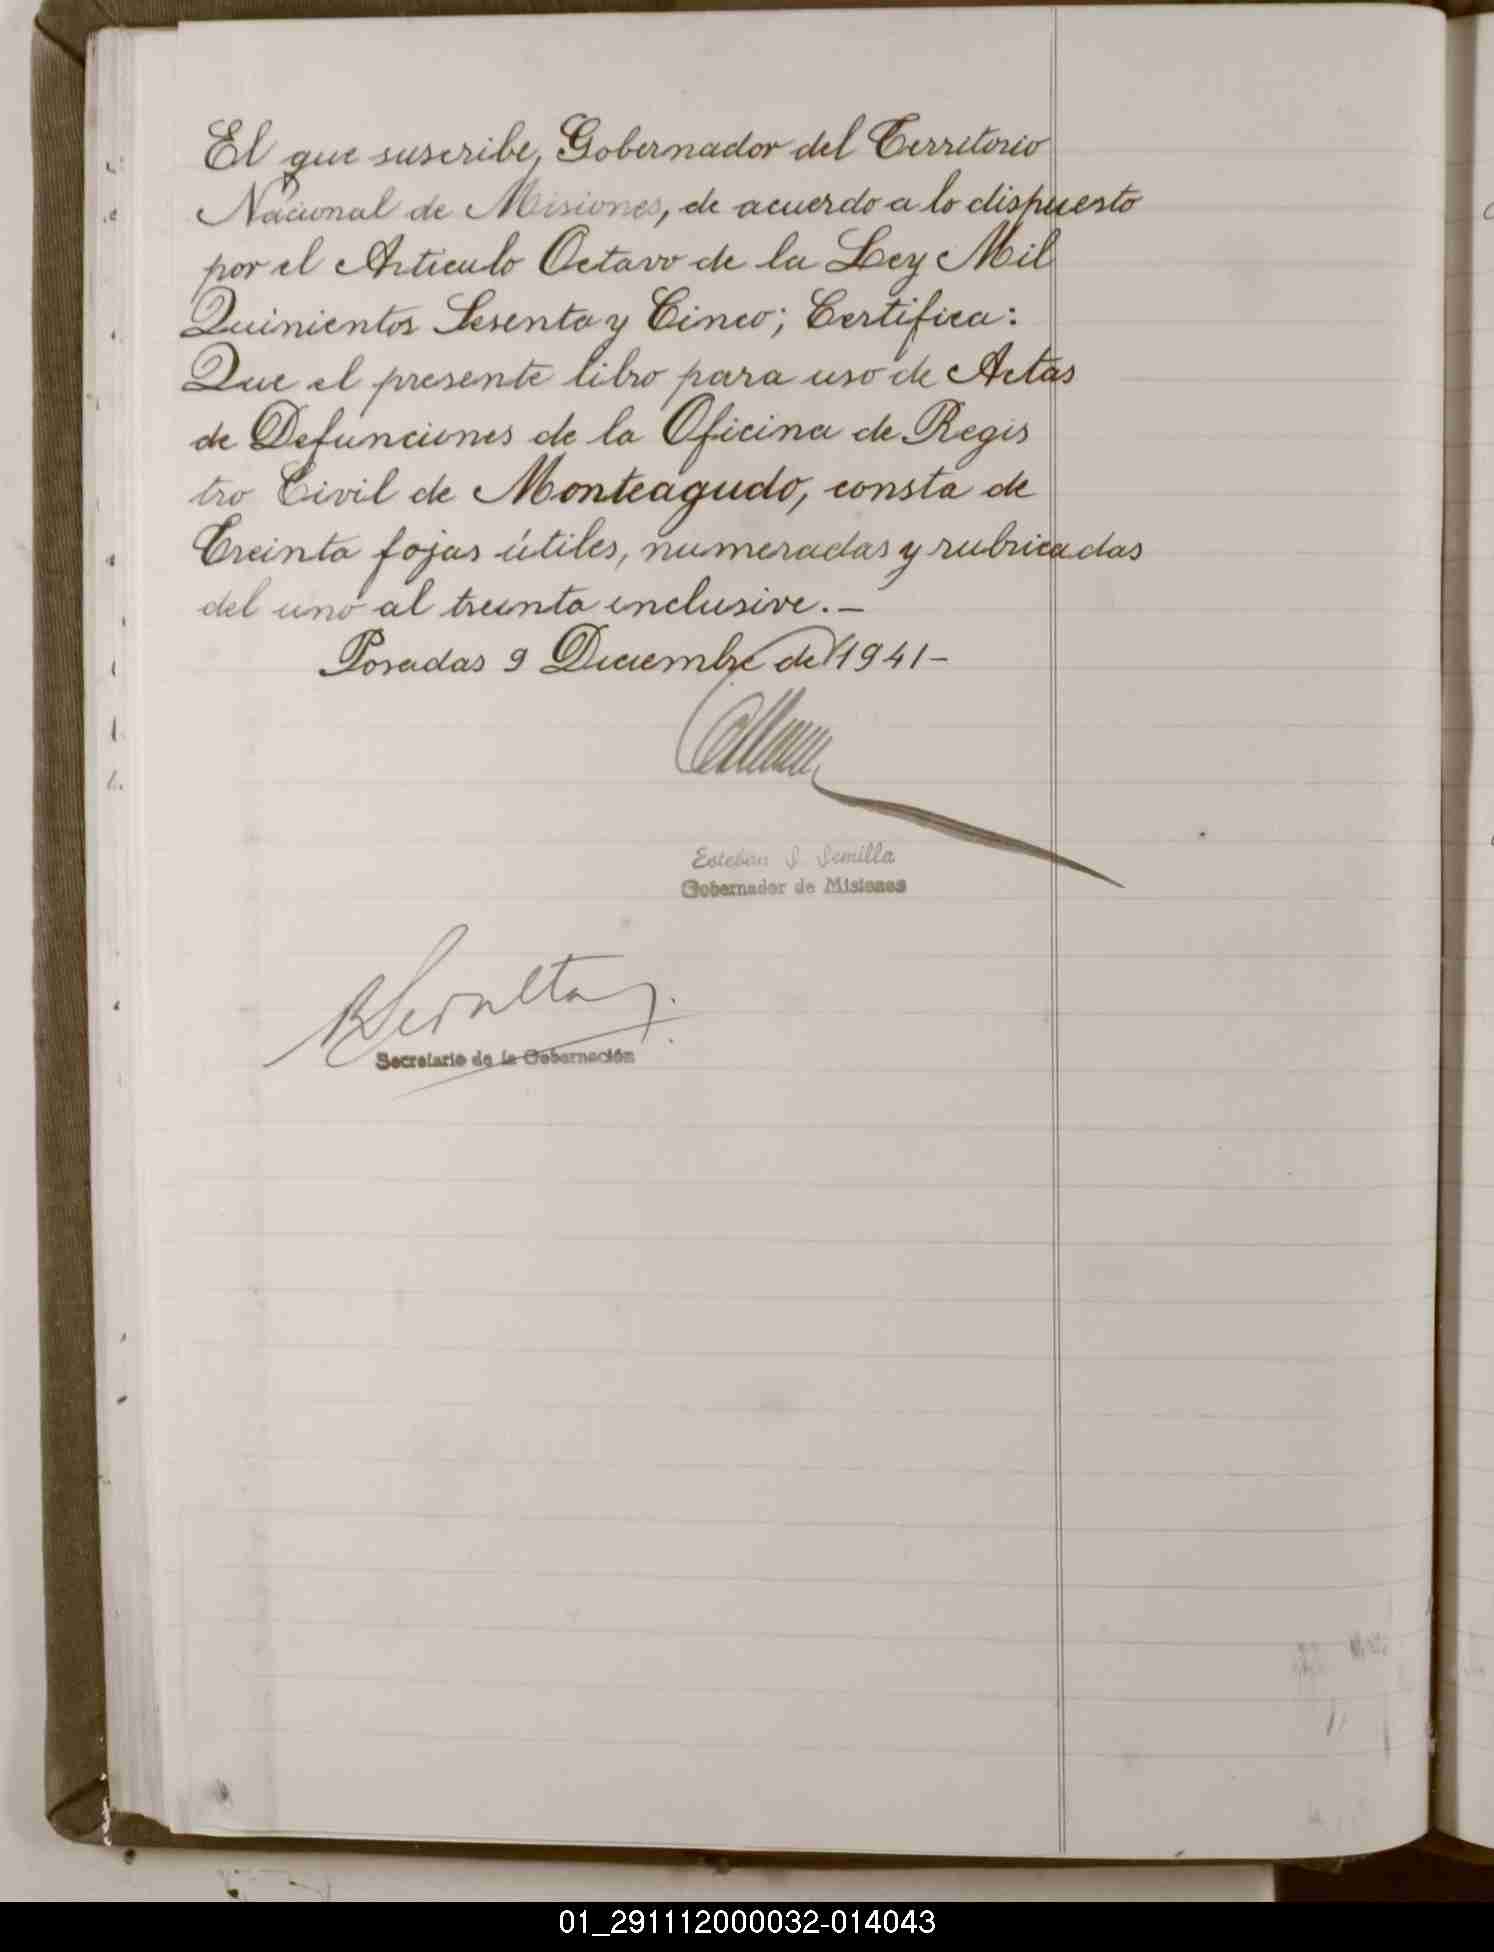 El que suscribe, Gobernador del Territorio
Nacional de Misiones, de acuerdo a lo dispuesto
por el Articulo Octavo de la Ley Mil
Quinientos Sesenta y Cinco; Certifica:
Que el presente libro para uso de Actas
de Defunciones de la Oficina de Regis
tro Civil de Monteagudo, consta de
Treinta fojas útiles, numeradas y rubricadas
del uno al treinta inclusive.—
Posadas 9 Diciembre de 1941—
Esteban S. Semilla
Gobernador de Misiones
Secretario de la Gobernación
01_291112000032-014043